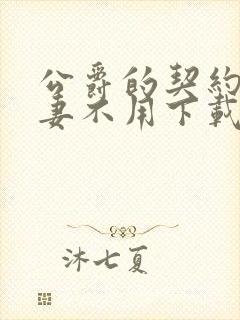 公爵的契約
妻不用下載
沐七夏